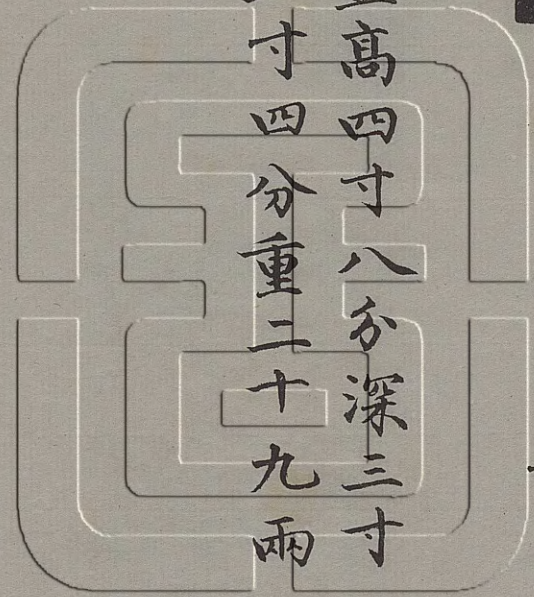 高四寸八分深三寸
寸四分重二十九兩